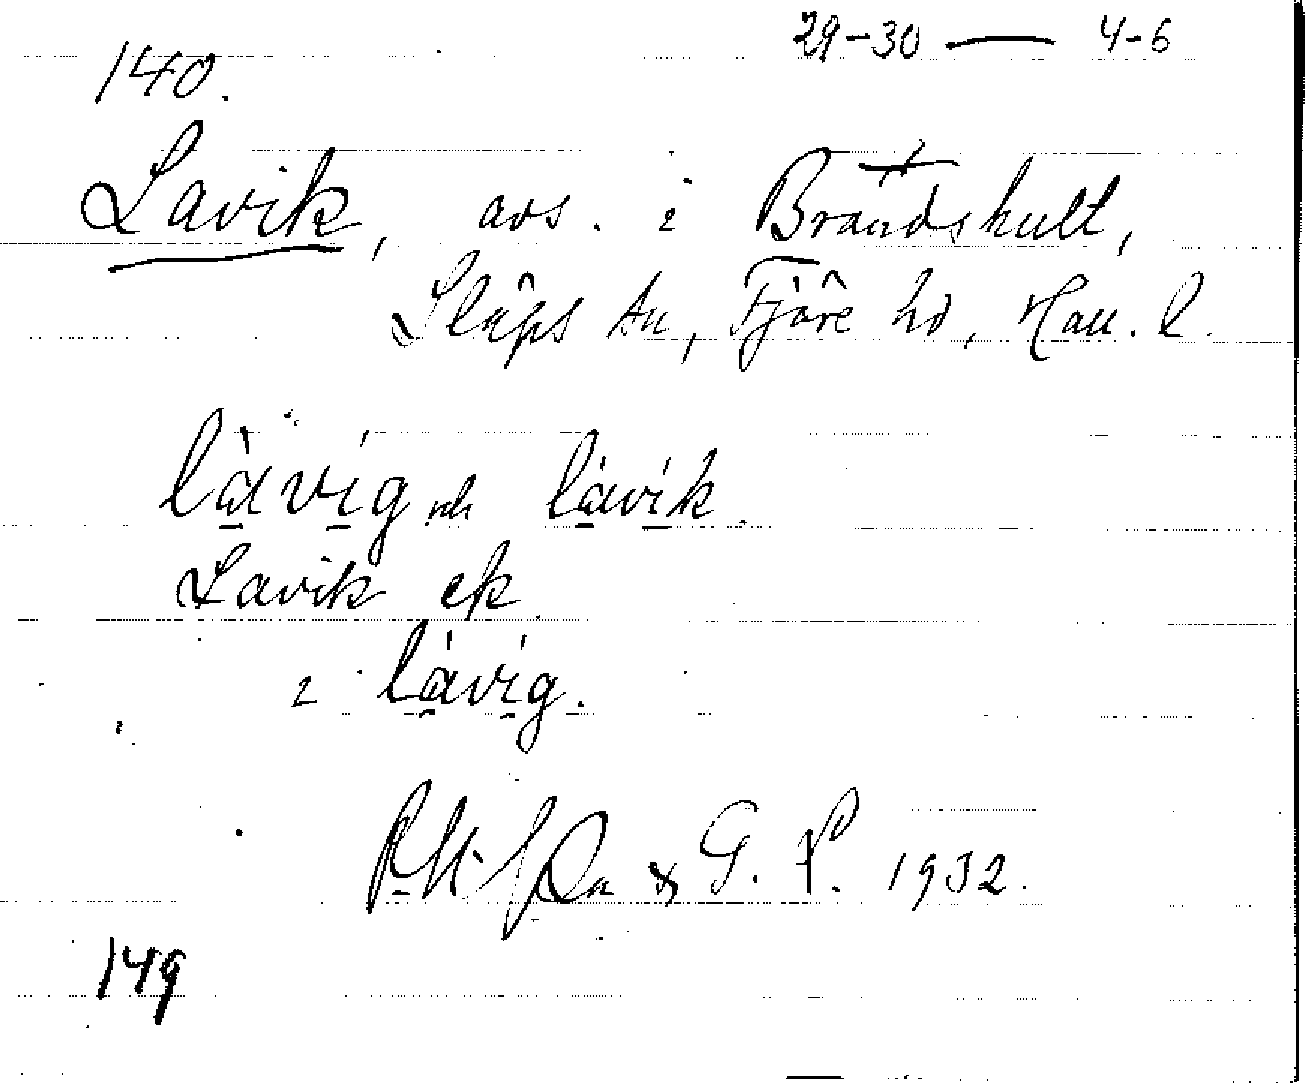 29-30 — 4-6
140.
Lavik, avs. i Brandshult,
Släps sn, Fjäre hd, Hall. l.
làvíg och làvík.
Lavik ek
i làvíg.
& G. P. 1932.
149